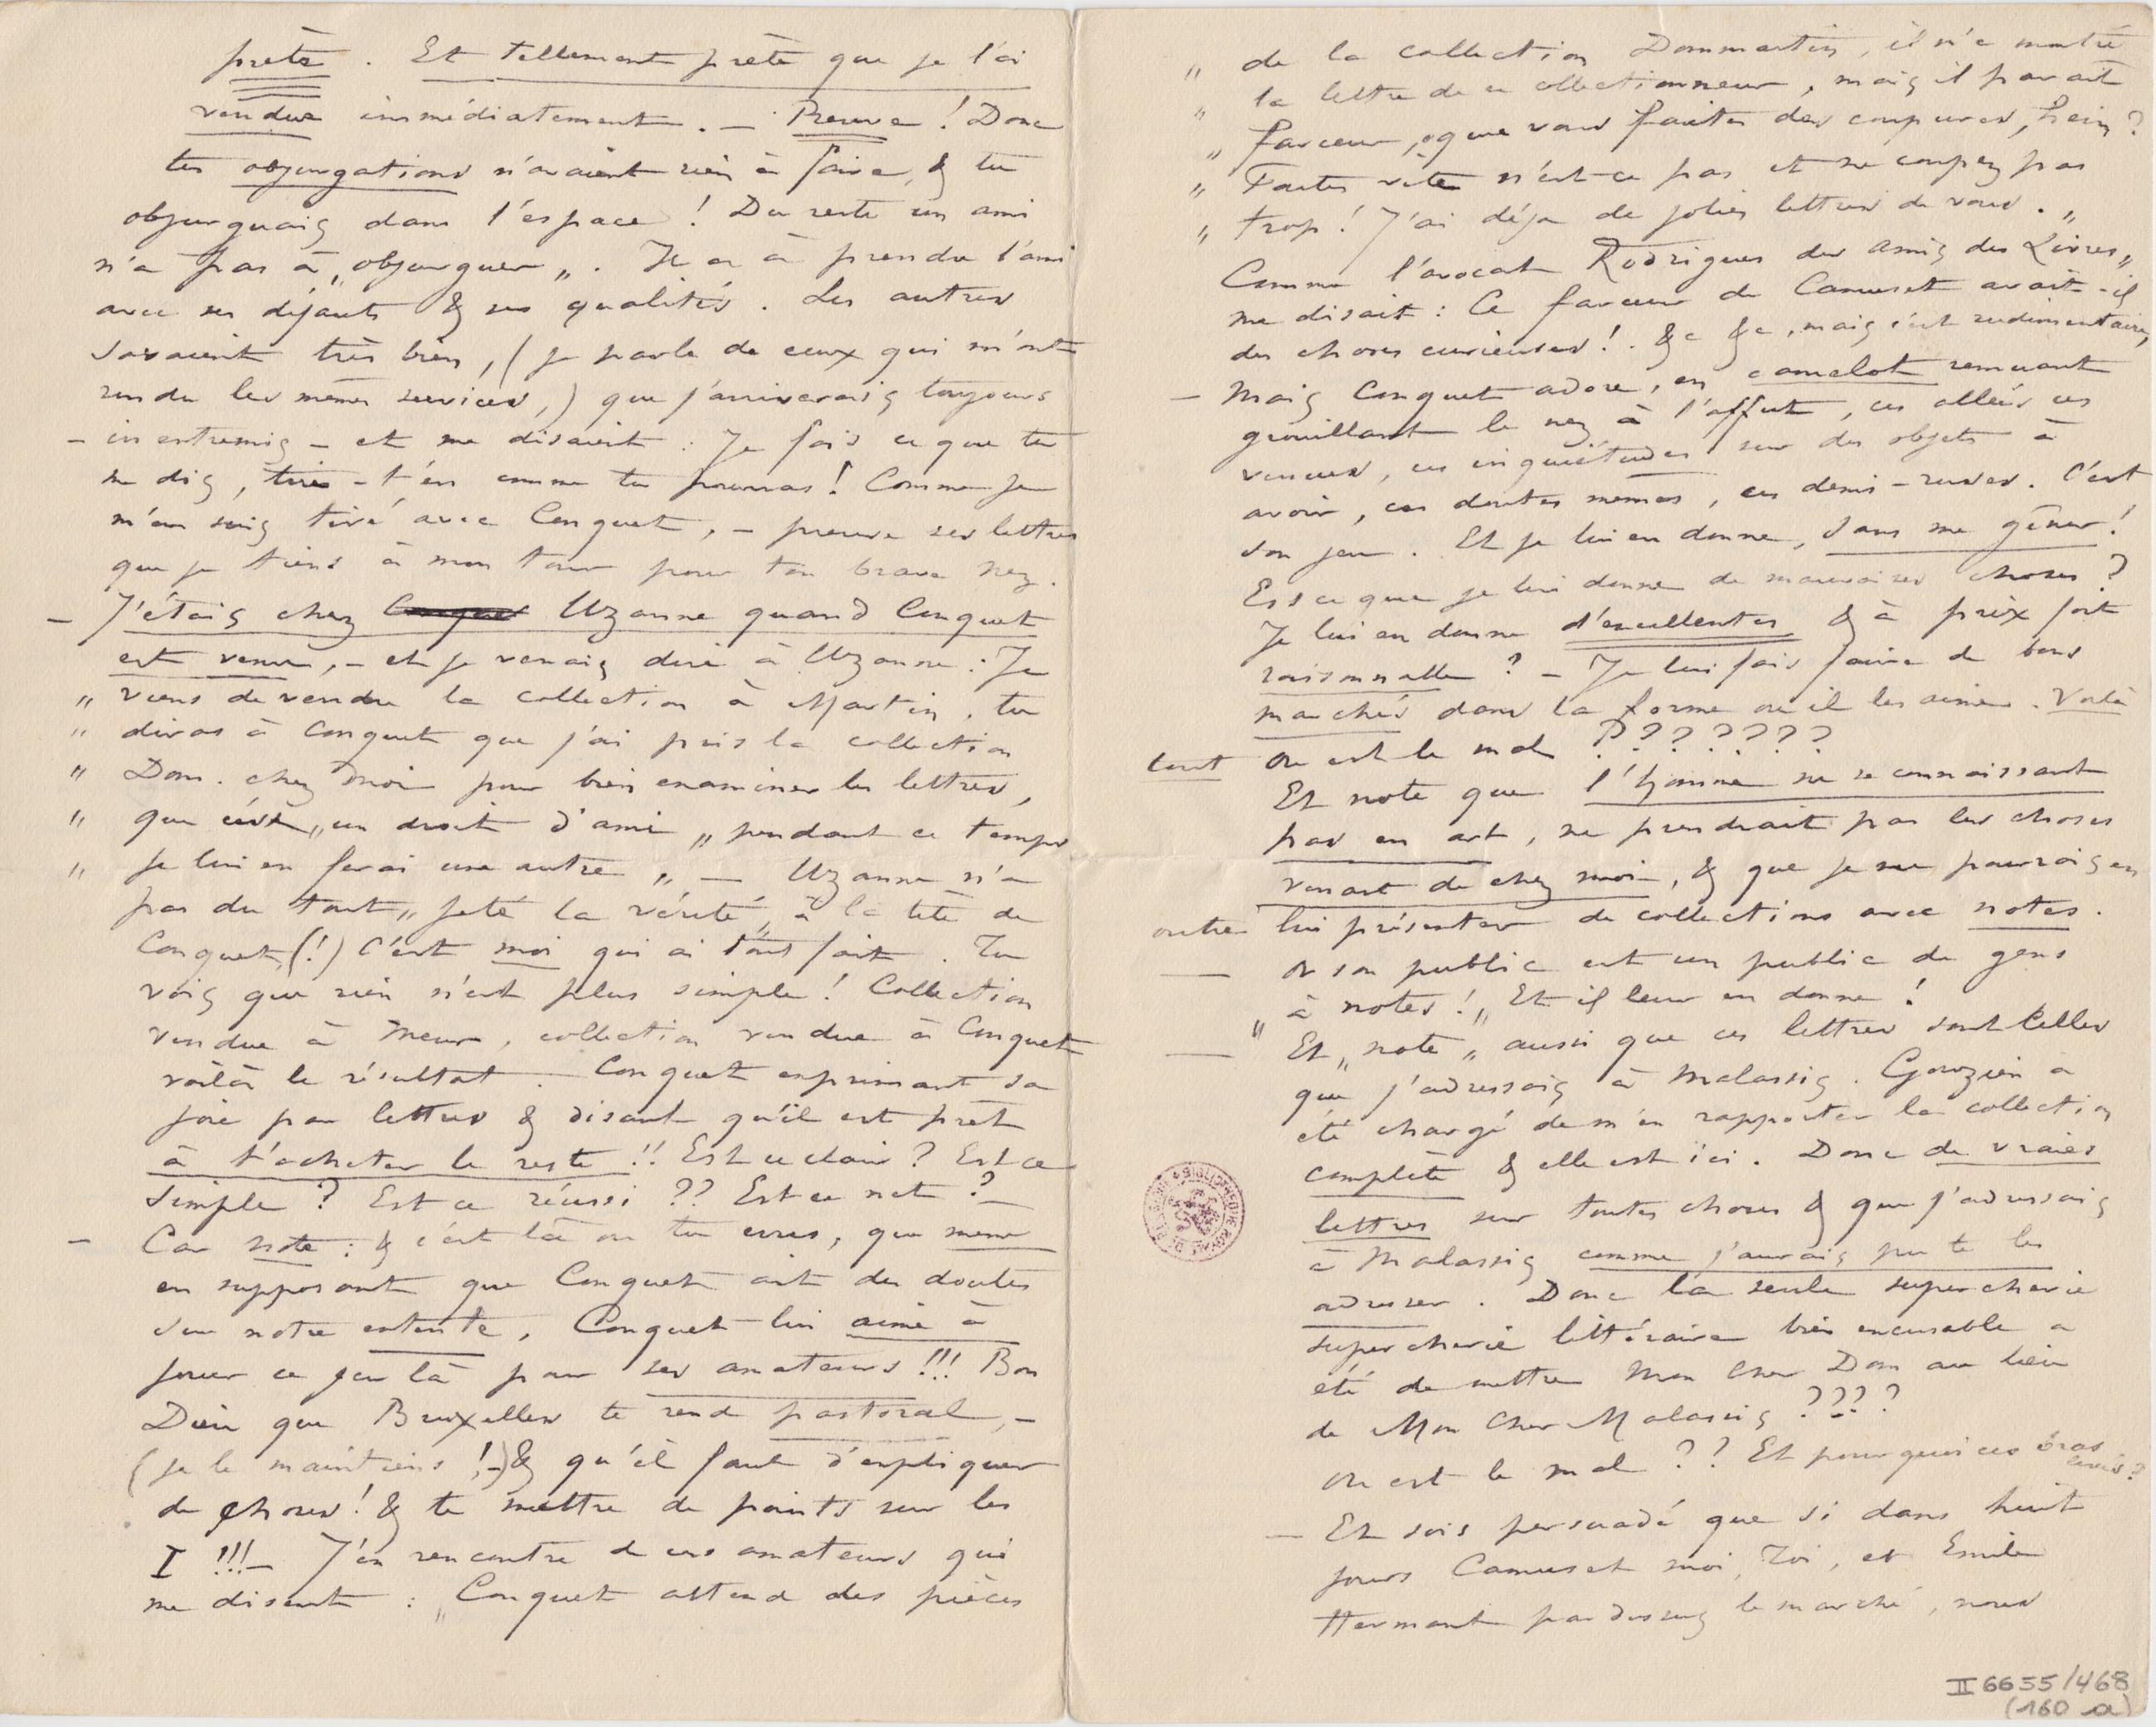 prète. Et tellement prète que je l'ai
vendue immédiatement. — Preuve ! Donc
tes objurgations n'avaient rien à faire, & tu
objurguais dans l'espace ! Du reste un ami
n'a pas à „objurguer„. Il a à prendre l'ami
avec ses défauts & ses qualités. Les autres
savaient très bien, (je parle de ceux qui m'ont
rendu les mêmes services,) que j'arriverais toujours
– in extremis – et me disaient : Je fais ce que tu
me dis, tire-t'en comme tu pourras ! Comme je
m'en suis tiré avec Conquet, – preuve ses lettres
que je tiens à mon tour pour ton brave nez.
– J'étais chez Conquet Uzanne quand Conquet
est venu, – et je venais dire à Uzanne : Je
„ viens de vendre la collection à Martin, tu
„ diras à Conquet que j'ai pris la collection
„ Dom. chez moi pour bien examiner les lettres,
„ que c'est „un droit d'ami„ pendant ce temps
„ je lui en ferai une autre „ — Uzanne n'a
pas du tout „jeté la vérité„ à la tête de
Conquet, (!) C'est moi qui ai tout fait. Tu
vois que rien n'est plus simple ! Collection
vendue à , collection vendue à Conquet
voilà le résultat. Conquet exprimant sa
joie par lettres & disant qu'il est prêt
à t'acheter le reste !! Est ce clair ? Est ce
simple ? Est ce réussi ?? Est ce net ? –
– Car note : & c'est là où tu erres, que meme
en supposant que Conquet ait des doutes
sur notre entente, Conquet lui aime à
jouer ce jeu là pour ses amateurs !!! Bon
Dieu que Bruxelles te rend pastoral, –
(je le maintiens !–) & qu'il faut t'expliquer
de choses ! & te mettre de points sur les
I !!!– J'en rencontre de ces amateurs qui
me disent : „Conquet attend des pièces
„ de la collection Dommartin, il m'a montré
„ la lettre de ce collectionneur, mais il parait
„ farceur, que vous faites des coupures, hein ?
„ Faites vite n'est-ce pas et ne coupez pas
„ trop ! J'ai déja de jolies lettres de vous. „
Comme l'avocat Rodrigues des Amis des Livres„
me disait : Ce farceur de Camuset avait-il
des choses curieuses ! &c &c, mais c'est rudimentaire,
– Mais Conquet adore, en camelot remuant
grouillant le nez à l'affut, ces allées ces
venues, ces inquiétudes sur des objets à
avoir, ces doutes mêmes, ces demi-ruses. C'est
son jeu. Et je lui en donne, sans me gêner !
Est ce que je lui donne de mauvaises choses ?
Je lui en donne d'excellentes & à prix fort
raisonnable ? – Je lui fais faire de bons
marchés dans la forme où il les aime. Voilà
tout où est le mal ????????
Et note que l'homme ne se connaissant
pas en art, ne prendrait pas les choses
venant de chez moi, & que je ne pourrais en
outre lui présenter de collections avec notes.
— Or son public est un public de gens
„ à notes !„ Et il leur en donne !
— Et „note„ aussi que ces lettres sont celles
que j'adressais à Malassis. Gouzien a
été chargé de m'en rapporter la collection
complète & elle est ici. Donc de vraies
lettres sur toutes choses & que j'adressais
à Malassis comme j'aurais pu te les
adresser. Donc la seule supercherie
supercherie littéraire bien excusable a
été de mettre Mon Cher Dom au lieu
de Mon Cher Malassis ????
Où est le mal ?? Et pourquoi ces bras
levés ?
– Et sois persuadé que si dans huit
jours Camuset moi, Toi, et Emile
Hermant par dessus le marché, nous
II 6655/468
(160 a)